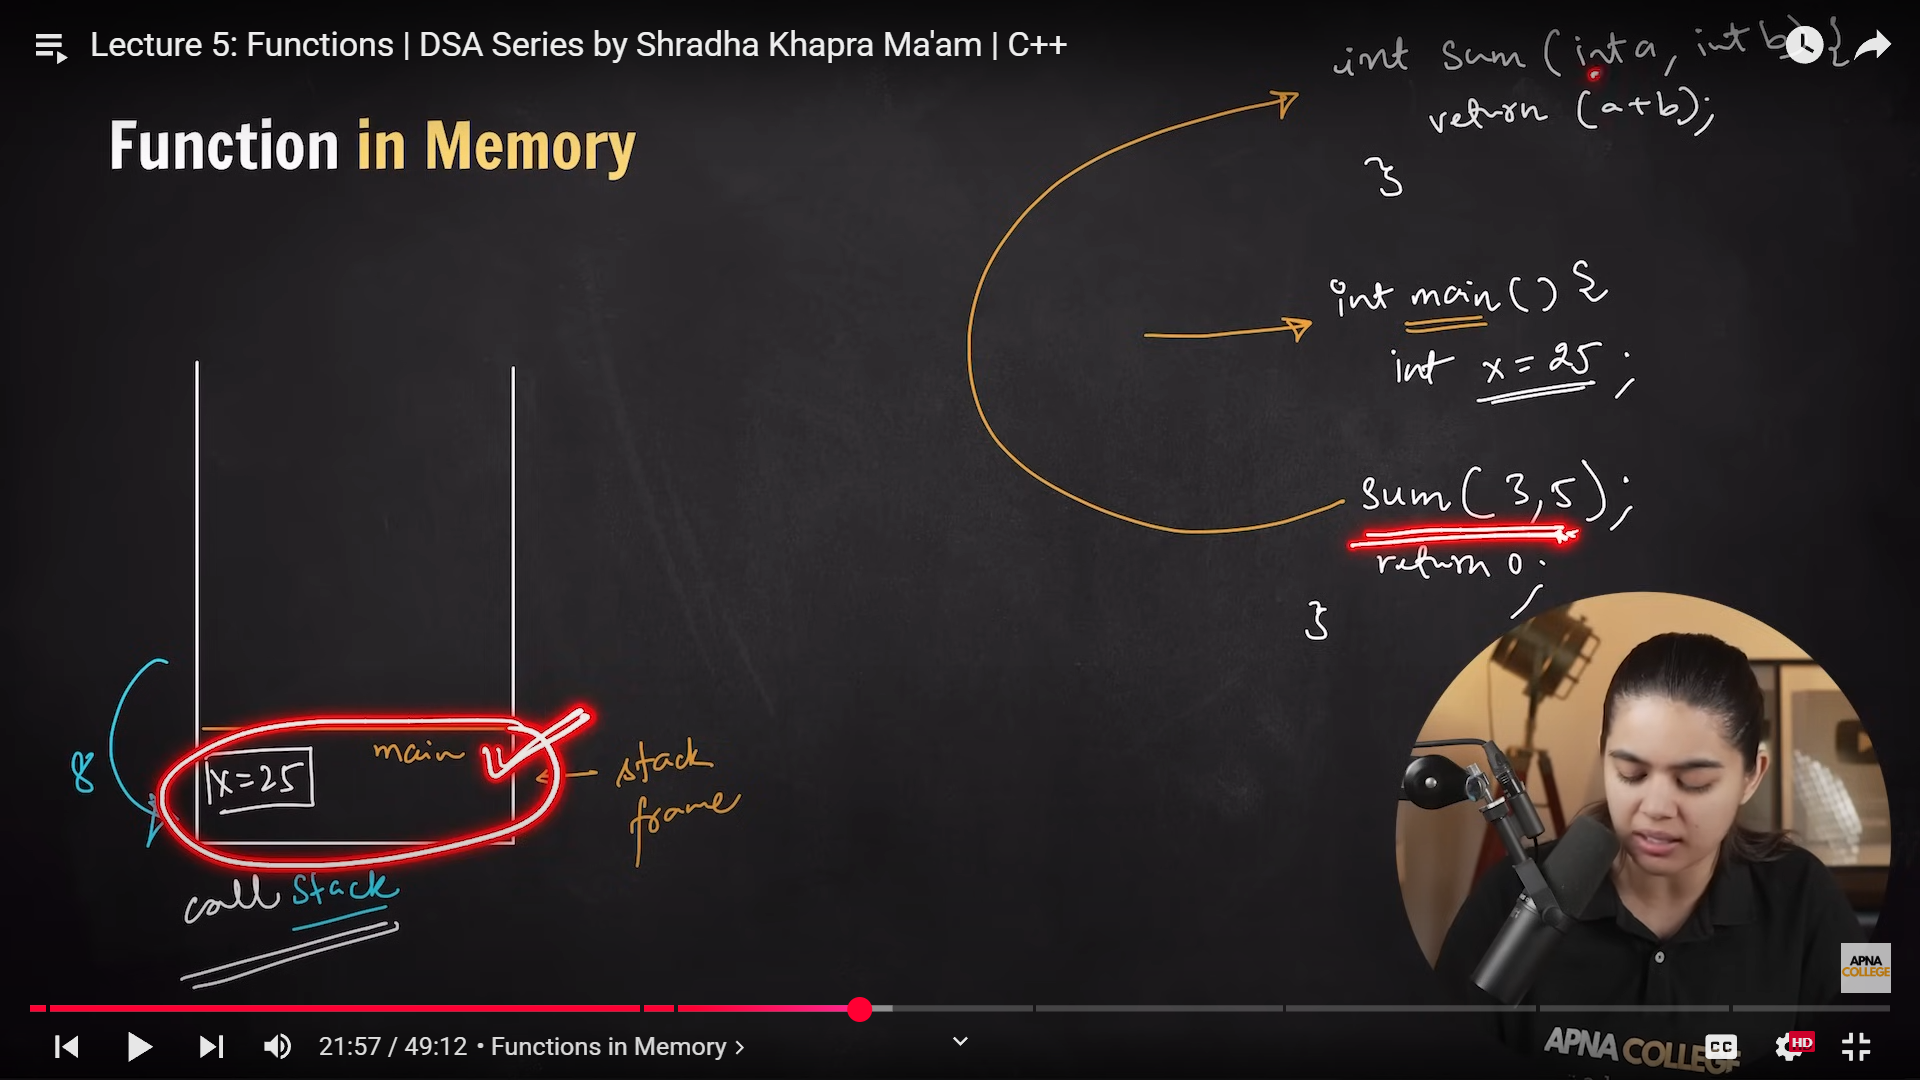 Lecture 5: Functions | DSA Series by Shradha Khapra Ma'am | C++
Function in Memory
int sum (int a, int b) {
return (a+b);
}
int main() {
int x = 25;
sum(3,5);
return 0;
}
8
x=25
main
stack
frame
call stack
APNA
COLLEGE
APNA COLLEGE
21:57 / 49:12 • Functions in Memory
CC
HD